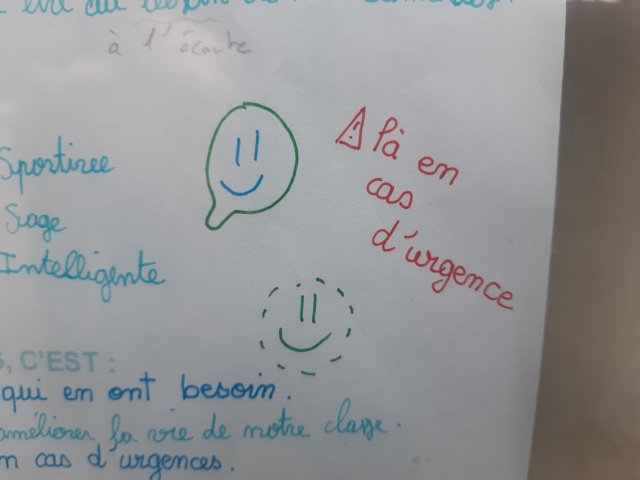 à l'écoute
là en
cas
d'urgence
Sportive
Sage
Intelligente
, C'EST :
qui en ont besoin.
améliorer la vie de notre classe.
n cas d'urgences.